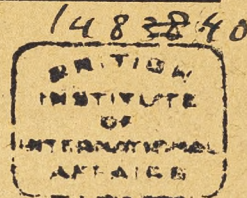 BRITISH
INSTITUTE
OF
INTERNATIONAL
AFFAIRS